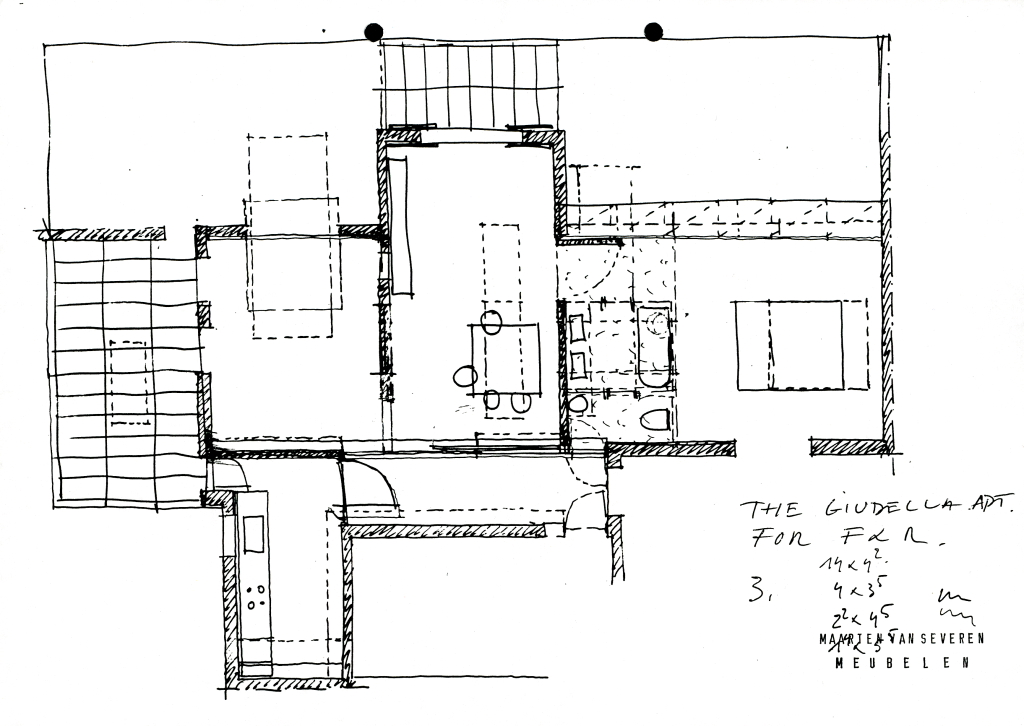 THE GIUDELLA APT.
FOR F & R.
14 x 4²
3. 4 x 3⁵
2² x 4⁵
MAARTEN VAN SEVEREN
MEUBELEN